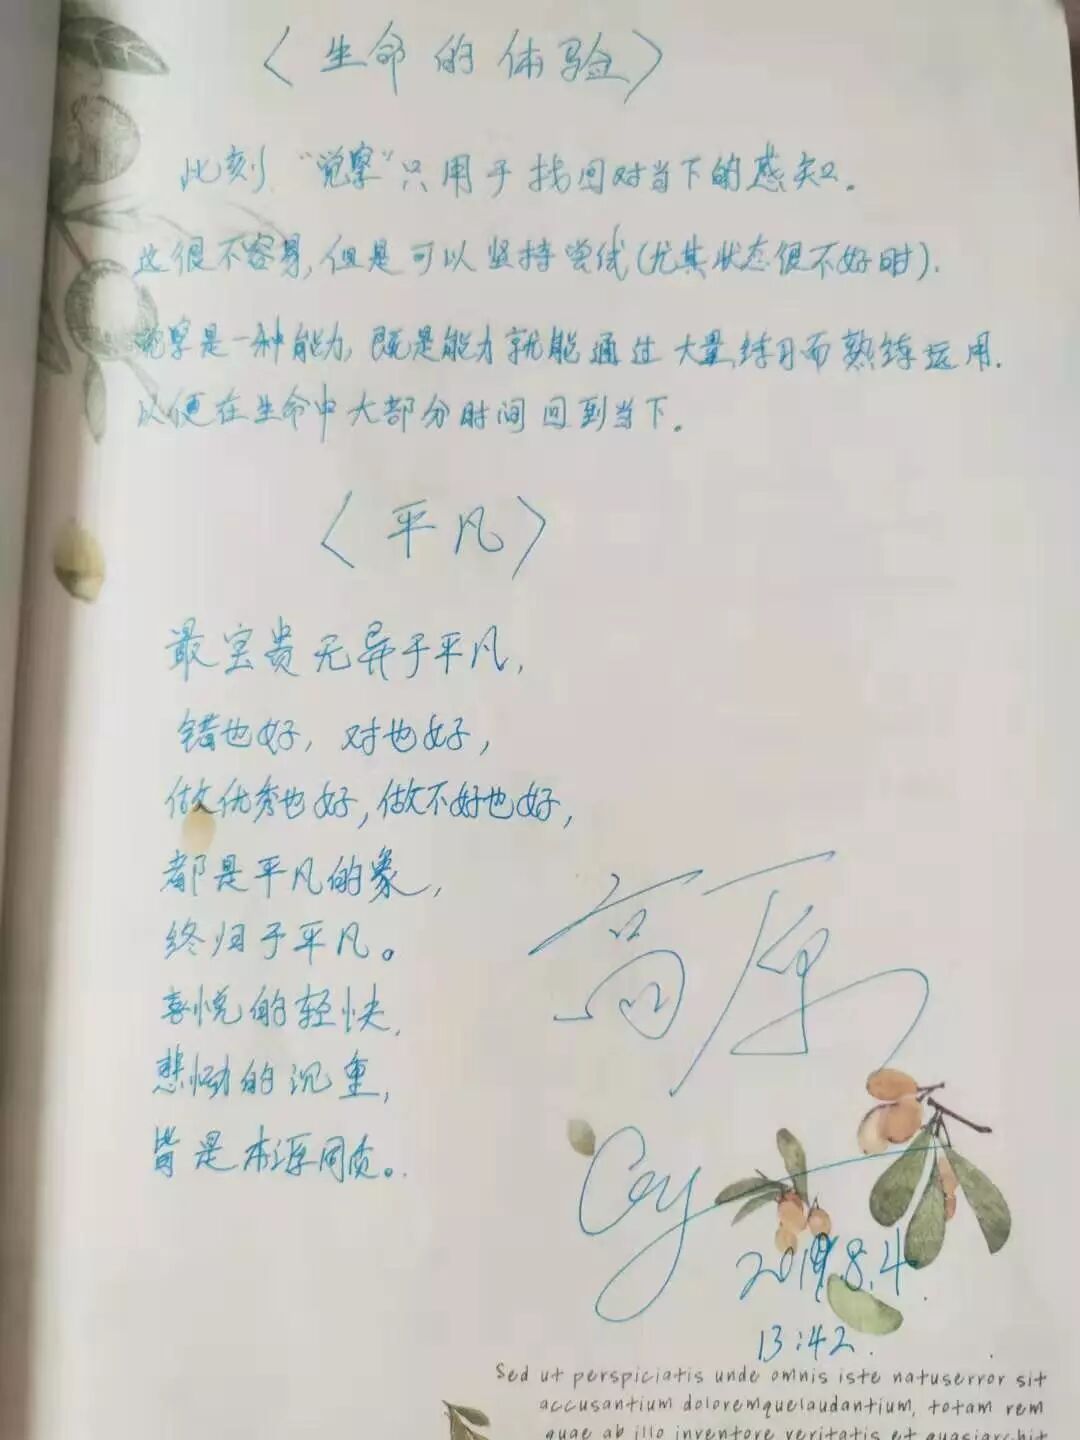 〈生命的体验〉
此刻，"觉察"只用于找回对当下的感知。
这很不容易，但是可以坚持尝试(尤其状态很不好时).
觉察是一种能力，既是能力就能通过大量练习而熟练运用.
以便在生命中大部分时间回到当下。
〈平凡〉
最宝贵无异于平凡，
错也好，对也好，
做优秀也好，做不好也好，
都是平凡的象，
终归于平凡。
喜悦的轻快，
悲恸的沉重，
皆是本源同质。
高原
2019.8.4.
13:42.
Sed ut perspiciatis unde omnis iste natuserror sit
accusantium doloremquelaudantium, totam rem
quae ab illo inventore veritatis et quasiarchit